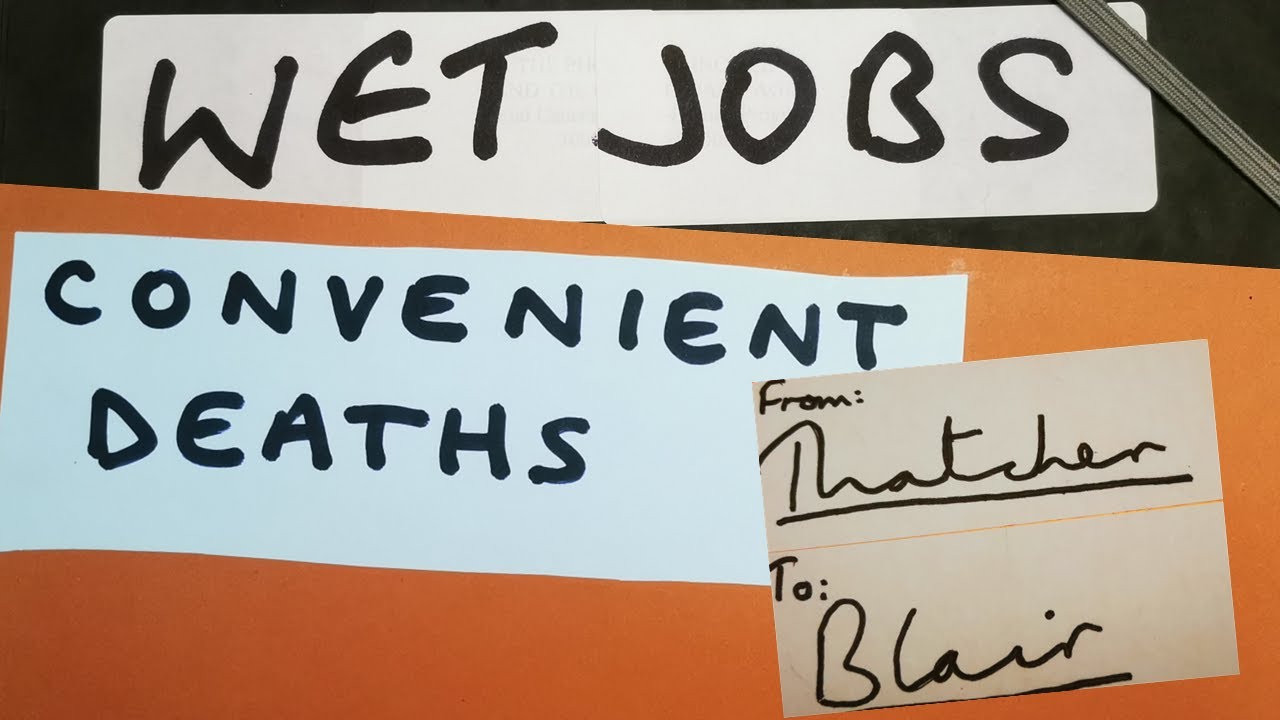 WET JOBS
CONVENIENT
DEATHS
From:
Thatcher
To:
Blair